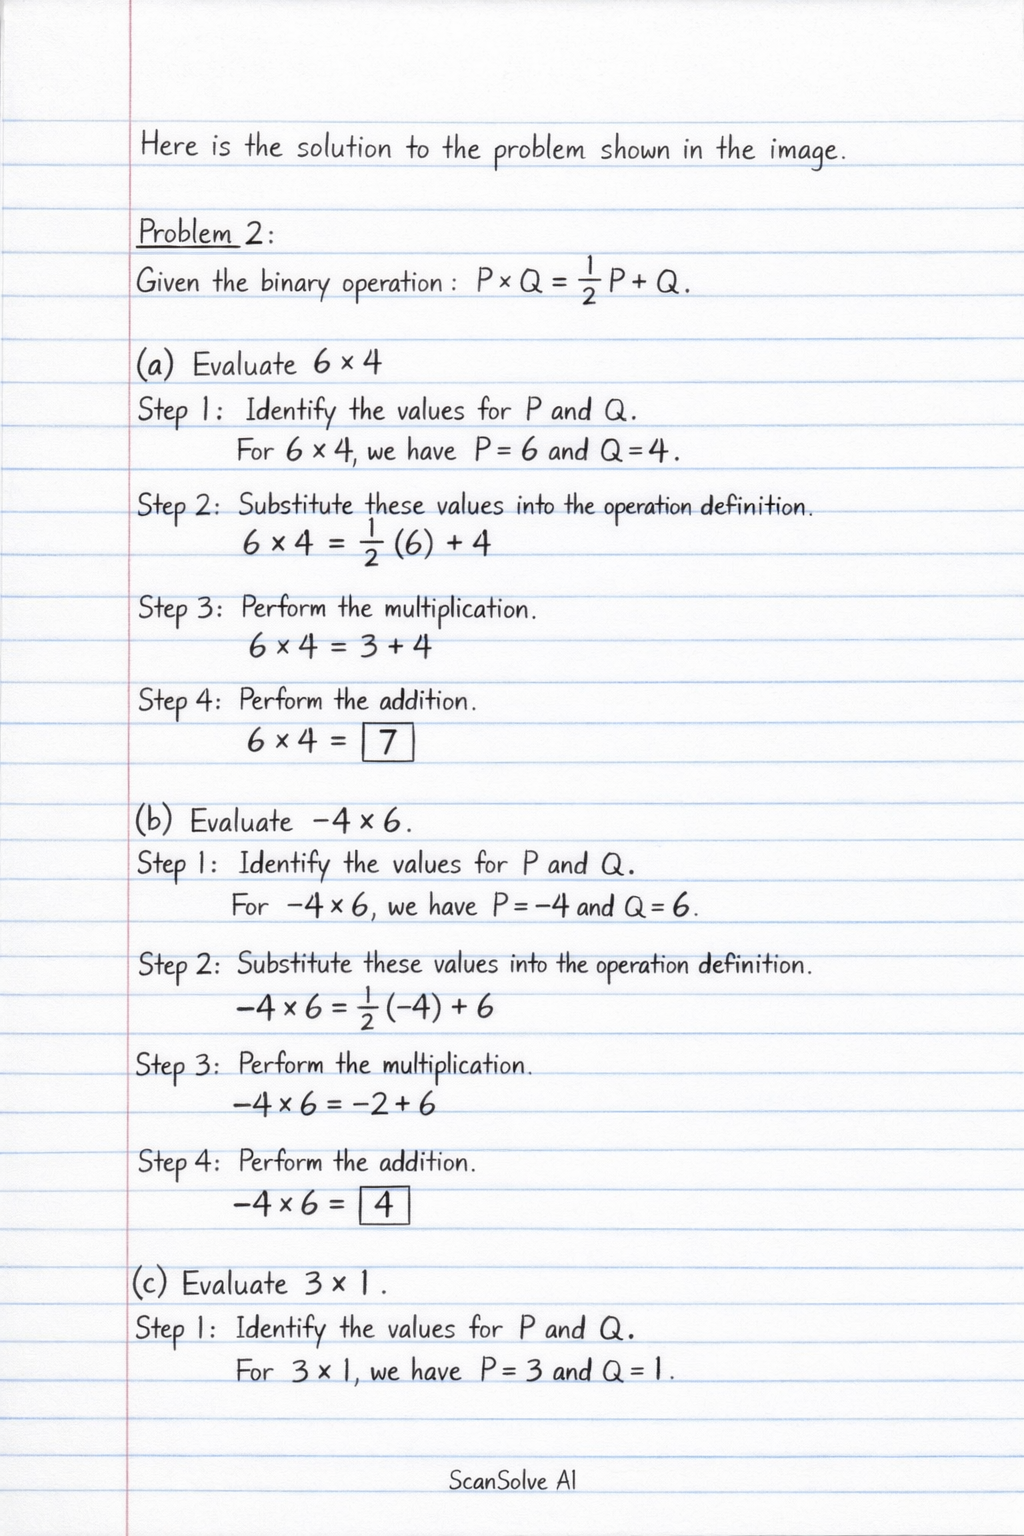 Here is the solution to the problem shown in the image.
Problem 2:
Given the binary operation: P × Q = 1/2 P + Q.
(a) Evaluate 6 × 4
Step 1: Identify the values for P and Q.
For 6 × 4, we have P = 6 and Q = 4.
Step 2: Substitute these values into the operation definition.
6 × 4 = 1/2 (6) + 4
Step 3: Perform the multiplication.
6 × 4 = 3 + 4
Step 4: Perform the addition.
6 × 4 = 7
(b) Evaluate −4 × 6.
Step 1: Identify the values for P and Q.
For −4 × 6, we have P = −4 and Q = 6.
Step 2: Substitute these values into the operation definition.
−4 × 6 = 1/2 (−4) + 6
Step 3: Perform the multiplication.
−4 × 6 = −2 + 6
Step 4: Perform the addition.
−4 × 6 = 4
(c) Evaluate 3 × 1.
Step 1: Identify the values for P and Q.
For 3 × 1, we have P = 3 and Q = 1.
ScanSolve AI